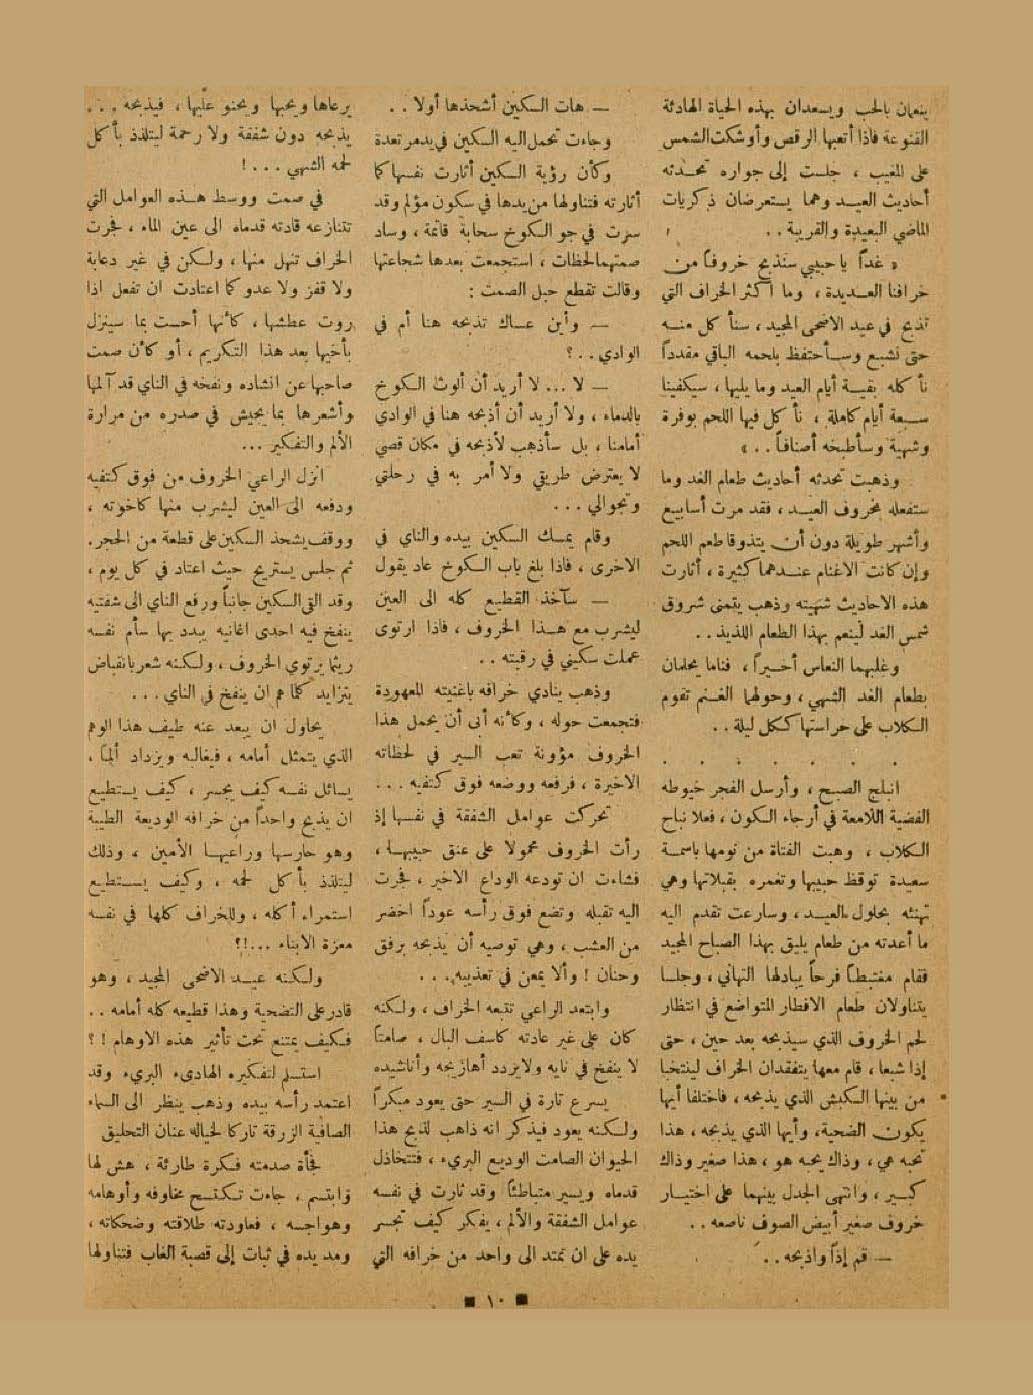 ينعمان بالحب ويسعدان بهذه الحياة الهادئة
القنوعة فاذا أتعبها الرقص وأوشكت الشمس
على المغيب ، جلست إلى جواره تحدثه
أحاديث العيد وهما يستعرضان ذكريات
الماضي البعيدة والقريبة . .
« غداً يا حبيبي سنذبح خروفاً من
خرافنا العديدة ، وما أكثر الخراف التي
تذبح في عيد الاضحى المجيد ، سنأكل منه
حتى نشبع وسأحتفظ بلحمه الباقي مقدداً
نأكله بقية أيام العيد وما يليها ، سيكفينا
سبعة أيام كاملة ، نأكل فيها اللحم بوفرة
وشهية وسأطبخه أصنافاً . . »
وذهبت تحدثه أحاديث طعام الغد وما
ستفعله بخروف العيد ، فقد مرت أسابيع
وأشهر طويلة دون أن يتذوقا طعم اللحم
وإن كانت الاغنام عندهما كثيرة ، أثارت
هذه الاحاديث شهيته وذهب يتمنى شروق
شمس الغد لينعم بهذا الطعام اللذيذ . .
وغلبهما النعاس أخيراً ، فناما يحلمان
بطعام الغد الشهي ، وحولهما الغنم تقوم
الكلاب على حراستها ككل ليلة . .
. . . . . . .
انبلج الصبح ، وأرسل الفجر خيوطه
الفضية اللامعة في أرجاء الكون ، فعلا نباح
الكلاب ، وهبت الفتاة من نومها باسمة
سعيدة توقظ حبيبها وتغمره بقبلاتها وهي
تهنئه بحلول العيد ، وسارعت تقدم اليه
ما أعدته من طعام يليق بهذا الصباح المجيد
فقام مغتبطاً فرحاً يبادلها التهاني ، وجلسا
يتناولان طعام الافطار المتواضع في انتظار
لحم الخروف الذي سيذبحه بعد حين ، حتى
إذا شبعا ، قام معها يتفقدان الخراف لينتخبا
من بينها الكبش الذي يذبحه ، فاختلفا أيها
يكون الضحية ، وأيها الذي يذبحه ، هذا
تحبه هي ، وذاك يحبه هو ، هذا صغير وذاك
كبير ، وانتهى الجدل بينهما على اختيار
خروف صغير أبيض الصوف ناصعه . .
— قم إذاً واذبحه . .
— هات السكين أشحذها أولا . .
وجاءت تحمل اليه السكين في يدمر تعدة
وكأن رؤية السكين أثارت نفسها كما
أثارته فتناولها من يدها في سكون مؤلم وقد
سرت في جو الكوخ سحابة قاتمة ، وساد
صمتهما لحظات ، استجمعت بعدها شجاعتها
وقالت تقطع حبل الصمت :
— وأين عساك تذبحه هنا أم في
الوادي . . ؟
— لا ... لا أريد أن ألوث الكوخ
بالدماء ، ولا أريد أن أذبحه هنا في الوادي
أمامنا ، بل سأذهب لأذبحه في مكان قصي
لا يعترض طريقي ولا أمر به في رحلتي
وتجوالي . . .
وقام يمسك السكين بيده والناي في
الاخرى ، فاذا بلغ باب الكوخ عاد يقول
— سآخذ القطيع كله الى العين
ليشرب مع هذا الخروف ، فاذا ارتوى
عملت سكيني في رقبته . .
وذهب ينادي خرافه باغنيته المعهودة
فتجمعت حوله ، وكأنه أبى أن يحمل هذا
الخروف مؤونة تعب السير في لحظاته
الاخيرة ، فرفعه ووضعه فوق كتفيه . . .
تحركت عوامل الشفقة في نفسها إذ
رأت الخروف محمولا على عنق حبيبها ،
فشاءت ان تودعه الوداع الاخير ، فجرت
اليه تقبله وتضع فوق رأسه عوداً اخضر
من العشب ، وهي توصيه أن يذبحه برفق
وحنان ! وألا يمعن في تعذيبه . . .
وابتعد الراعي تتبعه الخراف ، ولكنه
كان على غير عادته كاسف البال ، صامتاً
لا ينفخ في نايه ولا يردد أهازيجه وأناشيده
يسرع تارة في السير حتى يعود مبكراً
ولكنه يعود فيذكر انه ذاهب لذبح هذا
الحيوان الصامت الوديع البريء ، فتتخاذل
قدماه ويسير متباطئاً وقد ثارت في نفسه
عوامل الشفقة والألم ، يفكر كيف تجسر
يده على ان تمتد الى واحد من خرافه التي
يرعاها ويحبها ويحنو عليها ، فيذبحه . . .
يذبحه دون شفقة ولا رحمة ليتلذذ بأكل
لحمه الشهي . . . !
في صمت ووسط هذه العوامل التي
تتنازعه قادته قدماه الى عين الماء ، فجرت
الخراف تنهل منها ، ولكن في غير دعابة
ولا قفز ولا عدو كما اعتادت ان تفعل اذا
روت عطشها ، كأنها أحست بما سينزل
بأخيها بعد هذا التكريم ، أو كأن صمت
صاحبها عن انشاده ونفخه في الناي قد آلمها
وأشعرها بما يجيش في صدره من مرارة
الألم والتفكير ...
انزل الراعي الخروف من فوق كتفيه
ودفعه الى العين ليشرب منها كاخوته ،
ووقف يشحذ السكين على قطعة من الحجر.
ثم جلس يستريح حيث اعتاد في كل يوم ،
وقد القى السكين جانباً ورفع الناي الى شفتيه
ينفخ فيه احدى اغانيه يبدد بها سأم نفسه
ريثما يرتوي الخروف ، ولكنه شعر بانقباض
يتزايد كلما هم ان ينفخ في الناي . . .
يحاول ان يبعد عنه طيف هذا الوهم
الذي يتمثل أمامه ، فيغالبه ويزداد ألماً ،
يسائل نفسه كيف يجسر ، كيف يستطيع
ان يذبح واحداً من خرافه الوديعة الطيبة
وهو حارسها وراعيها الأمين ، وذلك
ليتلذذ بأكل لحمه ، وكيف يستطيع
استمراء أكله ، وللخراف كلها في نفسه
معزة الابناء ...!؟
ولكنه عيد الاضحى المجيد ، وهو
قادر على التضحية وهذا قطيعه كله أمامه . .
فكيف يمتنع تحت تأثير هذه الاوهام ! ؟
استسلم لتفكيره الهادىء البريء وقد
اعتمد رأسه بيده وذهب ينظر الى السماء
الصافية الزرقة تاركا لخياله عنان التحليق
فجأة صدمته فكرة طارئة ، هش لها
وابتسم ، جاءت تكتسح مخاوفه وأوهامه
وهواجسه ، فعاودته طلاقته وضحكاته ،
ومد يده في ثبات إلى قصبة الغاب فتناولها
■ ١٠ ■